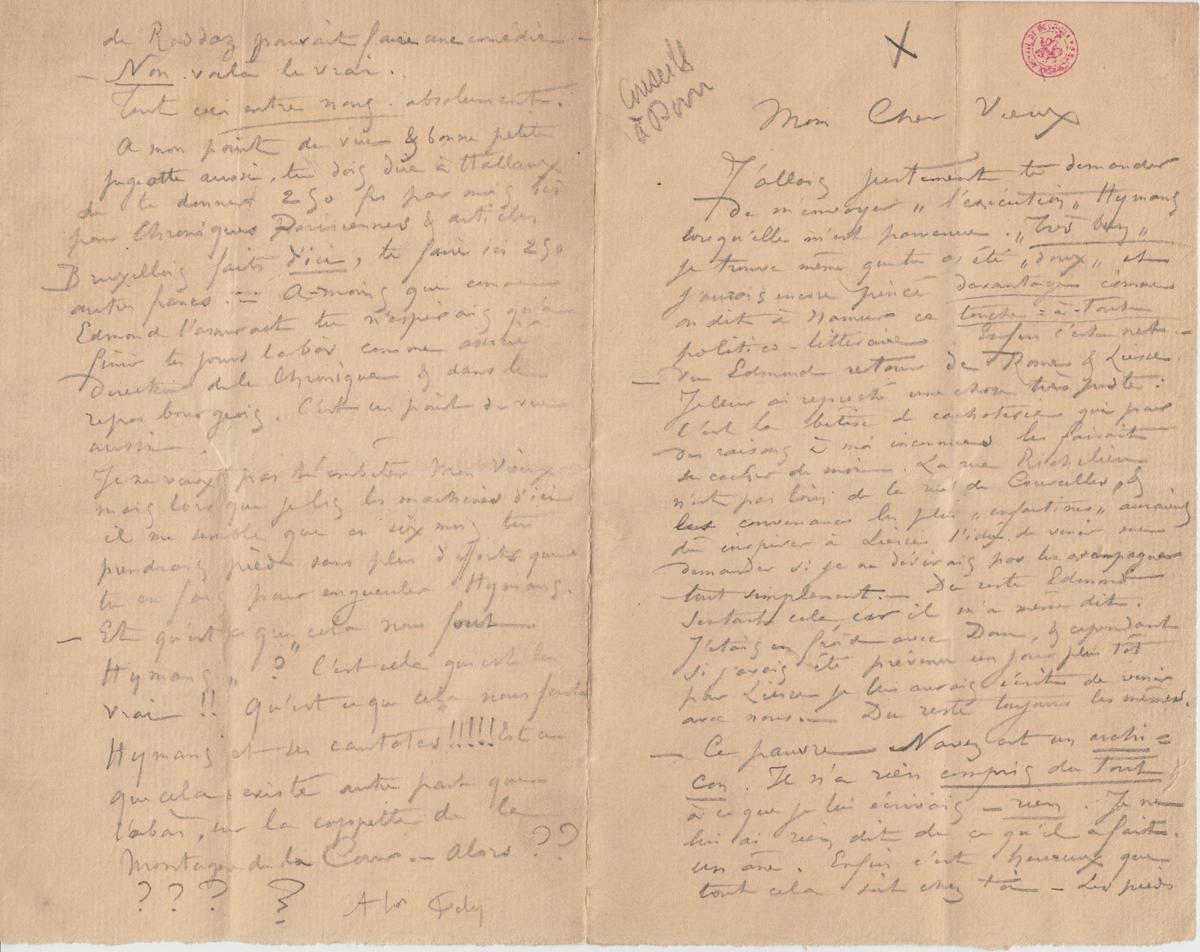 Conseils
à Dom
X
Mon Cher Vieux
J'allais justement te demander
de m'envoyer „l'exécution„ Hymans
lorsqu'elle m'est parvenue. „Très bien„
je trouve même que tu as été „doux„ et
j'aurais encore pincé davantage comme
on dit à Namur ce touche=à-tout
politico-littéraire. Enfin c'est net. —
— Vu Edmond retour de Rome & Liesse.
Je leur ai reproché une chose très juste :
C'est la bêtise de cachoterie qui pour
des raisons à moi inconnues les faisait
se cacher de moi. La rue Richelieu
n'est pas loin de la rue de Courcelles, &
les convenances les plus „enfantines„ auraient
dû inspirer à Liesse l'idée de venir me
demander si je ne désirais pas les accompagner
tout simplement. — Du reste Edmond
sentait cela car il m'a même dit.
J'étais en froid avec Dom, & cependant
si j'avais été prévenu un jour plus tôt
par Liesse je lui aurais écrit de venir
avec nous. — Du reste toujours les mêmes.
— Ce pauvre Navez est un archi=
con. Il n'a rien compris du tout
à ce que je lui écrivais — rien. Je ne
lui ai rien dit de ce qu'il a fait.
un âne. Enfin c'est heureux que
tout cela soit chez toi — Les pieds
de Raddaz pouvait faire une comédie. —
— Non voilà le vrai.
Tout ceci entre nous absolument.
A mon point de vue & bonne petite
jugeotte aussi, tu dois dire à Hallaux
de te donner 250 fs par mois ici
pour Chroniques Parisiennes & articles
Bruxellois faits d'ici, te faire ici 250
autres francs. — A-moins que comme
Edmond l'assurait tu n'espérais qu'à
finir tes jours là bas, comme
Directeur de la Chronique & dans le
repos bourgeois. C'est un point de vue
aussi.
Je ne veux pas t'embêter Mon Vieux
mais lorsque je lis les machines d'ici
il me semble que en six mois tu
prendrais pied sans plus d'efforts que
tu en fais pour engueuler Hymans.
— Et qu'est ce que „cela nous fout
Hymans„ ? C'est cela qui est le
vrai !! Qu'est ce que cela nous fout
Hymans et ses cantates !!!!! Est ce
que cela existe autre part que
là bas, sur la de la
Montagne de la Cour — Alors ??
? ? ? ?
A toi Fély